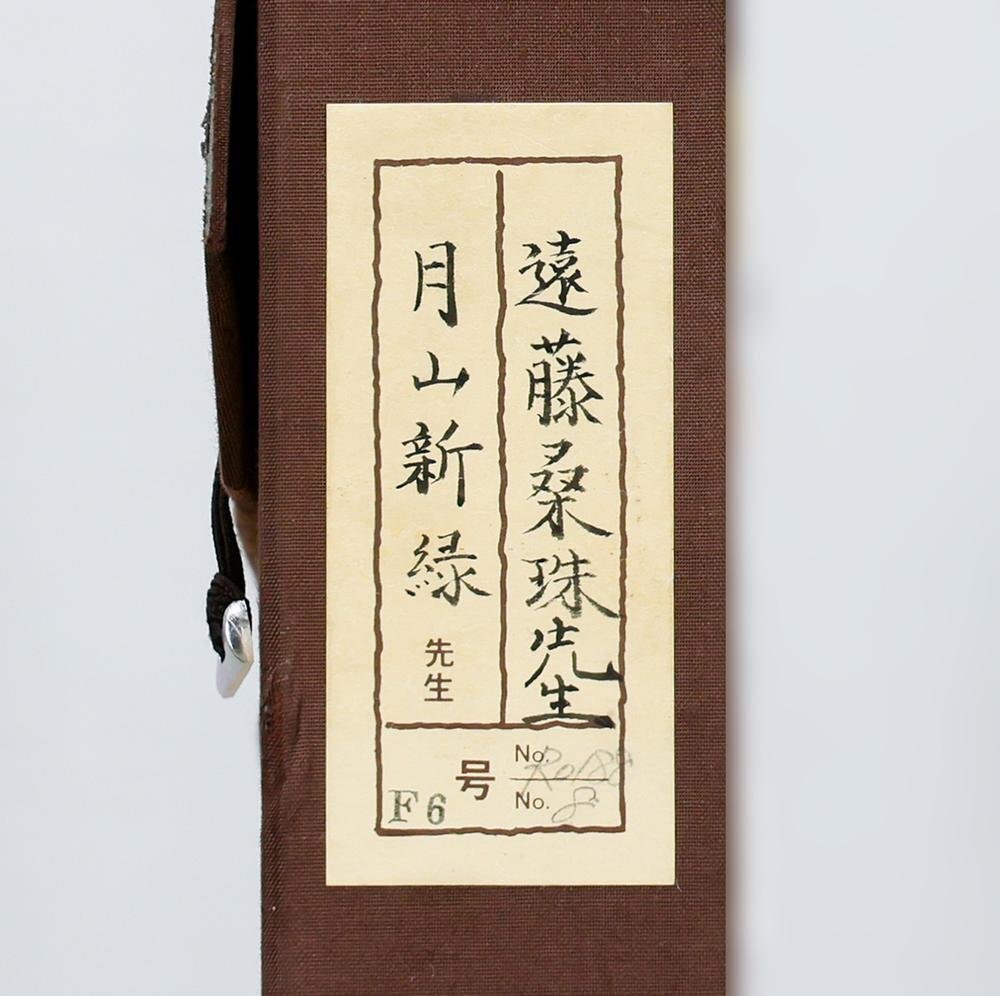 遠藤桑珠先生
月山新緑 先生
F6 号
No.
No. 8